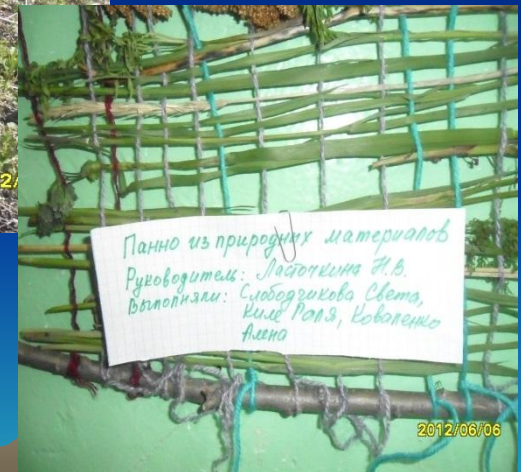 Панно из природных материалов
Руководитель: Ласточкина Н.В.
Выполняли: Слободчикова Света,
Киле Раля, Коваленко
Алена
2012/06/06